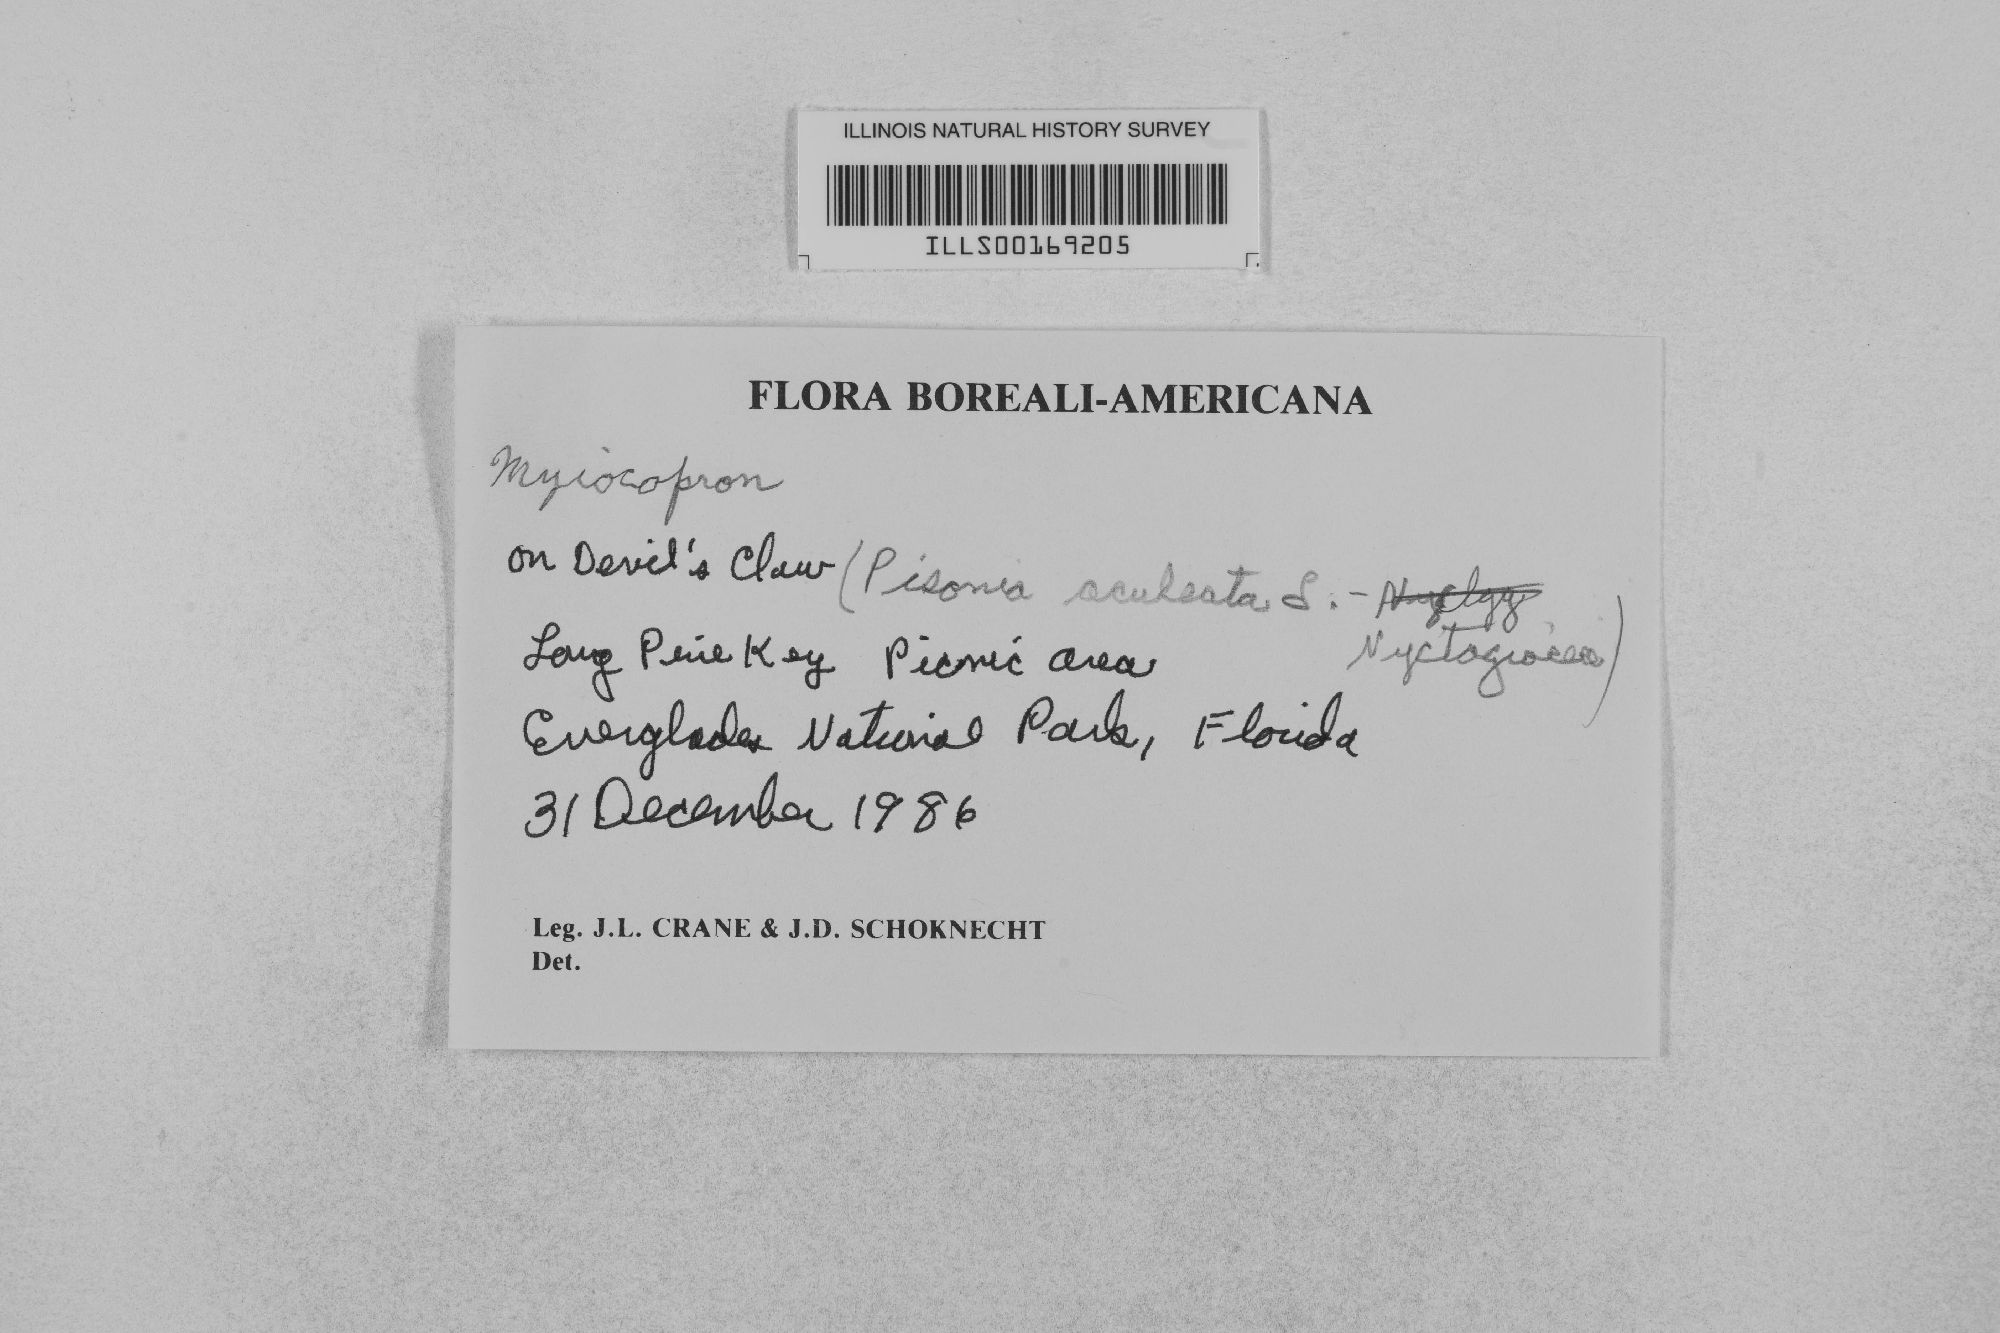 ILLINOIS NATURAL HISTORY SURVEY
ILLS00169205
FLORA BOREALI-AMERICANA
Myiocopron
on Devil's Claw (Pisonia aculeata L. -
Nyctaginaceae)
Long Pine Key Picnic area
Everglades National Park, Florida
31 December 1986
Leg. J.L. CRANE & J.D. SCHOKNECHT
Det.